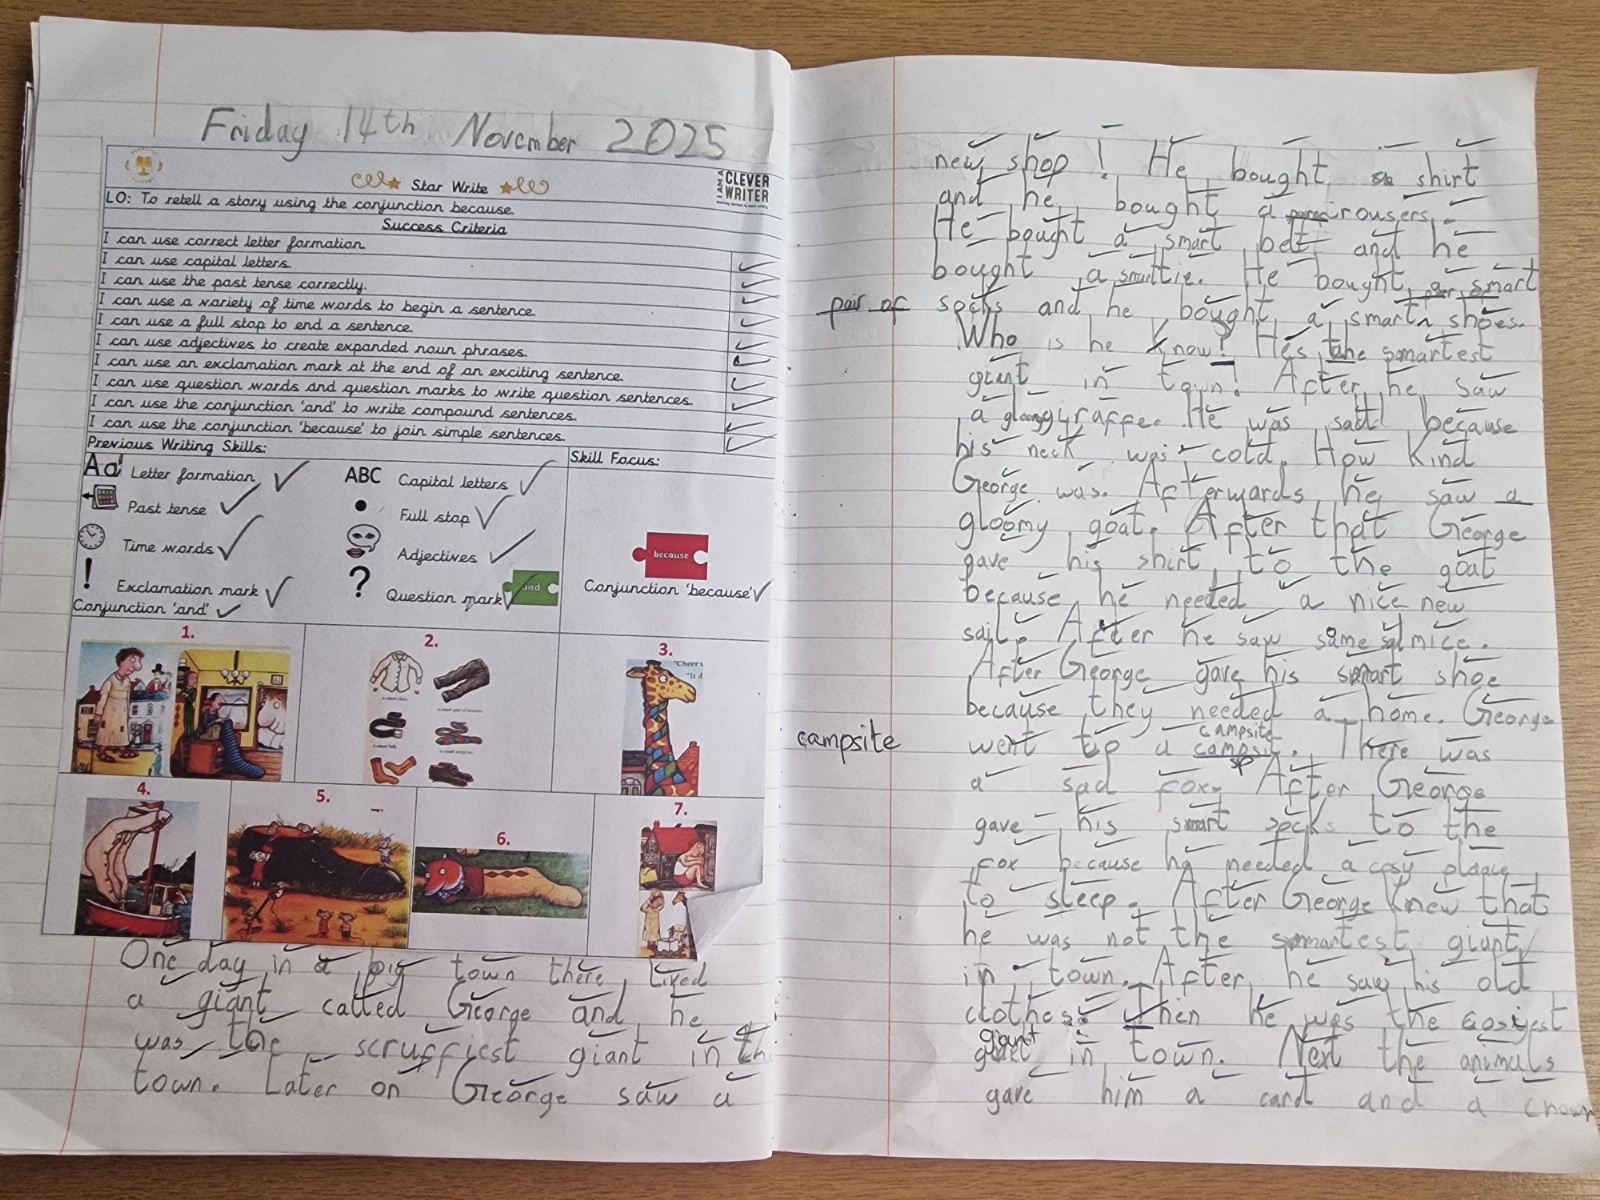 Friday 14th November 2025
Star Write
I AM A
CLEVER
WRITER
LO: To retell a story using the conjunction because.
Success Criteria
I can use correct letter formation.
I can use capital letters.
I can use the past tense correctly.
I can use a variety of time words to begin a sentence.
I can use a full stop to end a sentence.
I can use adjectives to create expanded noun phrases.
I can use an exclamation mark at the end of an exciting sentence.
I can use question words and question marks to write question sentences.
I can use the conjunction 'and' to write compound sentences.
I can use the conjunction 'because' to join simple sentences.
Previous Writing Skills:
Skill Focus:
Aa Letter formation
ABC Capital letters
Past tense
Full stop
Time words
Adjectives
! Exclamation mark
? Question mark
and
Conjunction 'and'
because
Conjunction 'because'
1.
2.
3.
"Cheer
4.
5.
6.
7.
One day in a big town there lived
a giant called George and he
was the scruffiest giant in
town. Later on George saw a
new shop! He bought shirt
and he bought a trousers.
He bought a smart belt and he
bought a smart tie. He bought a smart
pair of socks and he bought a smart shoes.
Who is he know? He's the smartest
giant in town! After he saw
a giraffe. He was sad because
his neck was cold. How kind
George was. Afterwards he saw a
gloomy goat. After that George
gave his shirt to the goat
because he needed a nice new
sail. After he saw some mice.
After George gave his smart shoe
because they needed a home. George
campsite
campsite
went to a campsit. There was
sp
a sad fox. After George
gave his smart socks to the
fox because he needed a cosy place
to sleep. After George knew that
he was not the smartest giant
in town. After he saw his old
clothes. Then he was the
giant in town. Next the animals
gave him a card and a crown